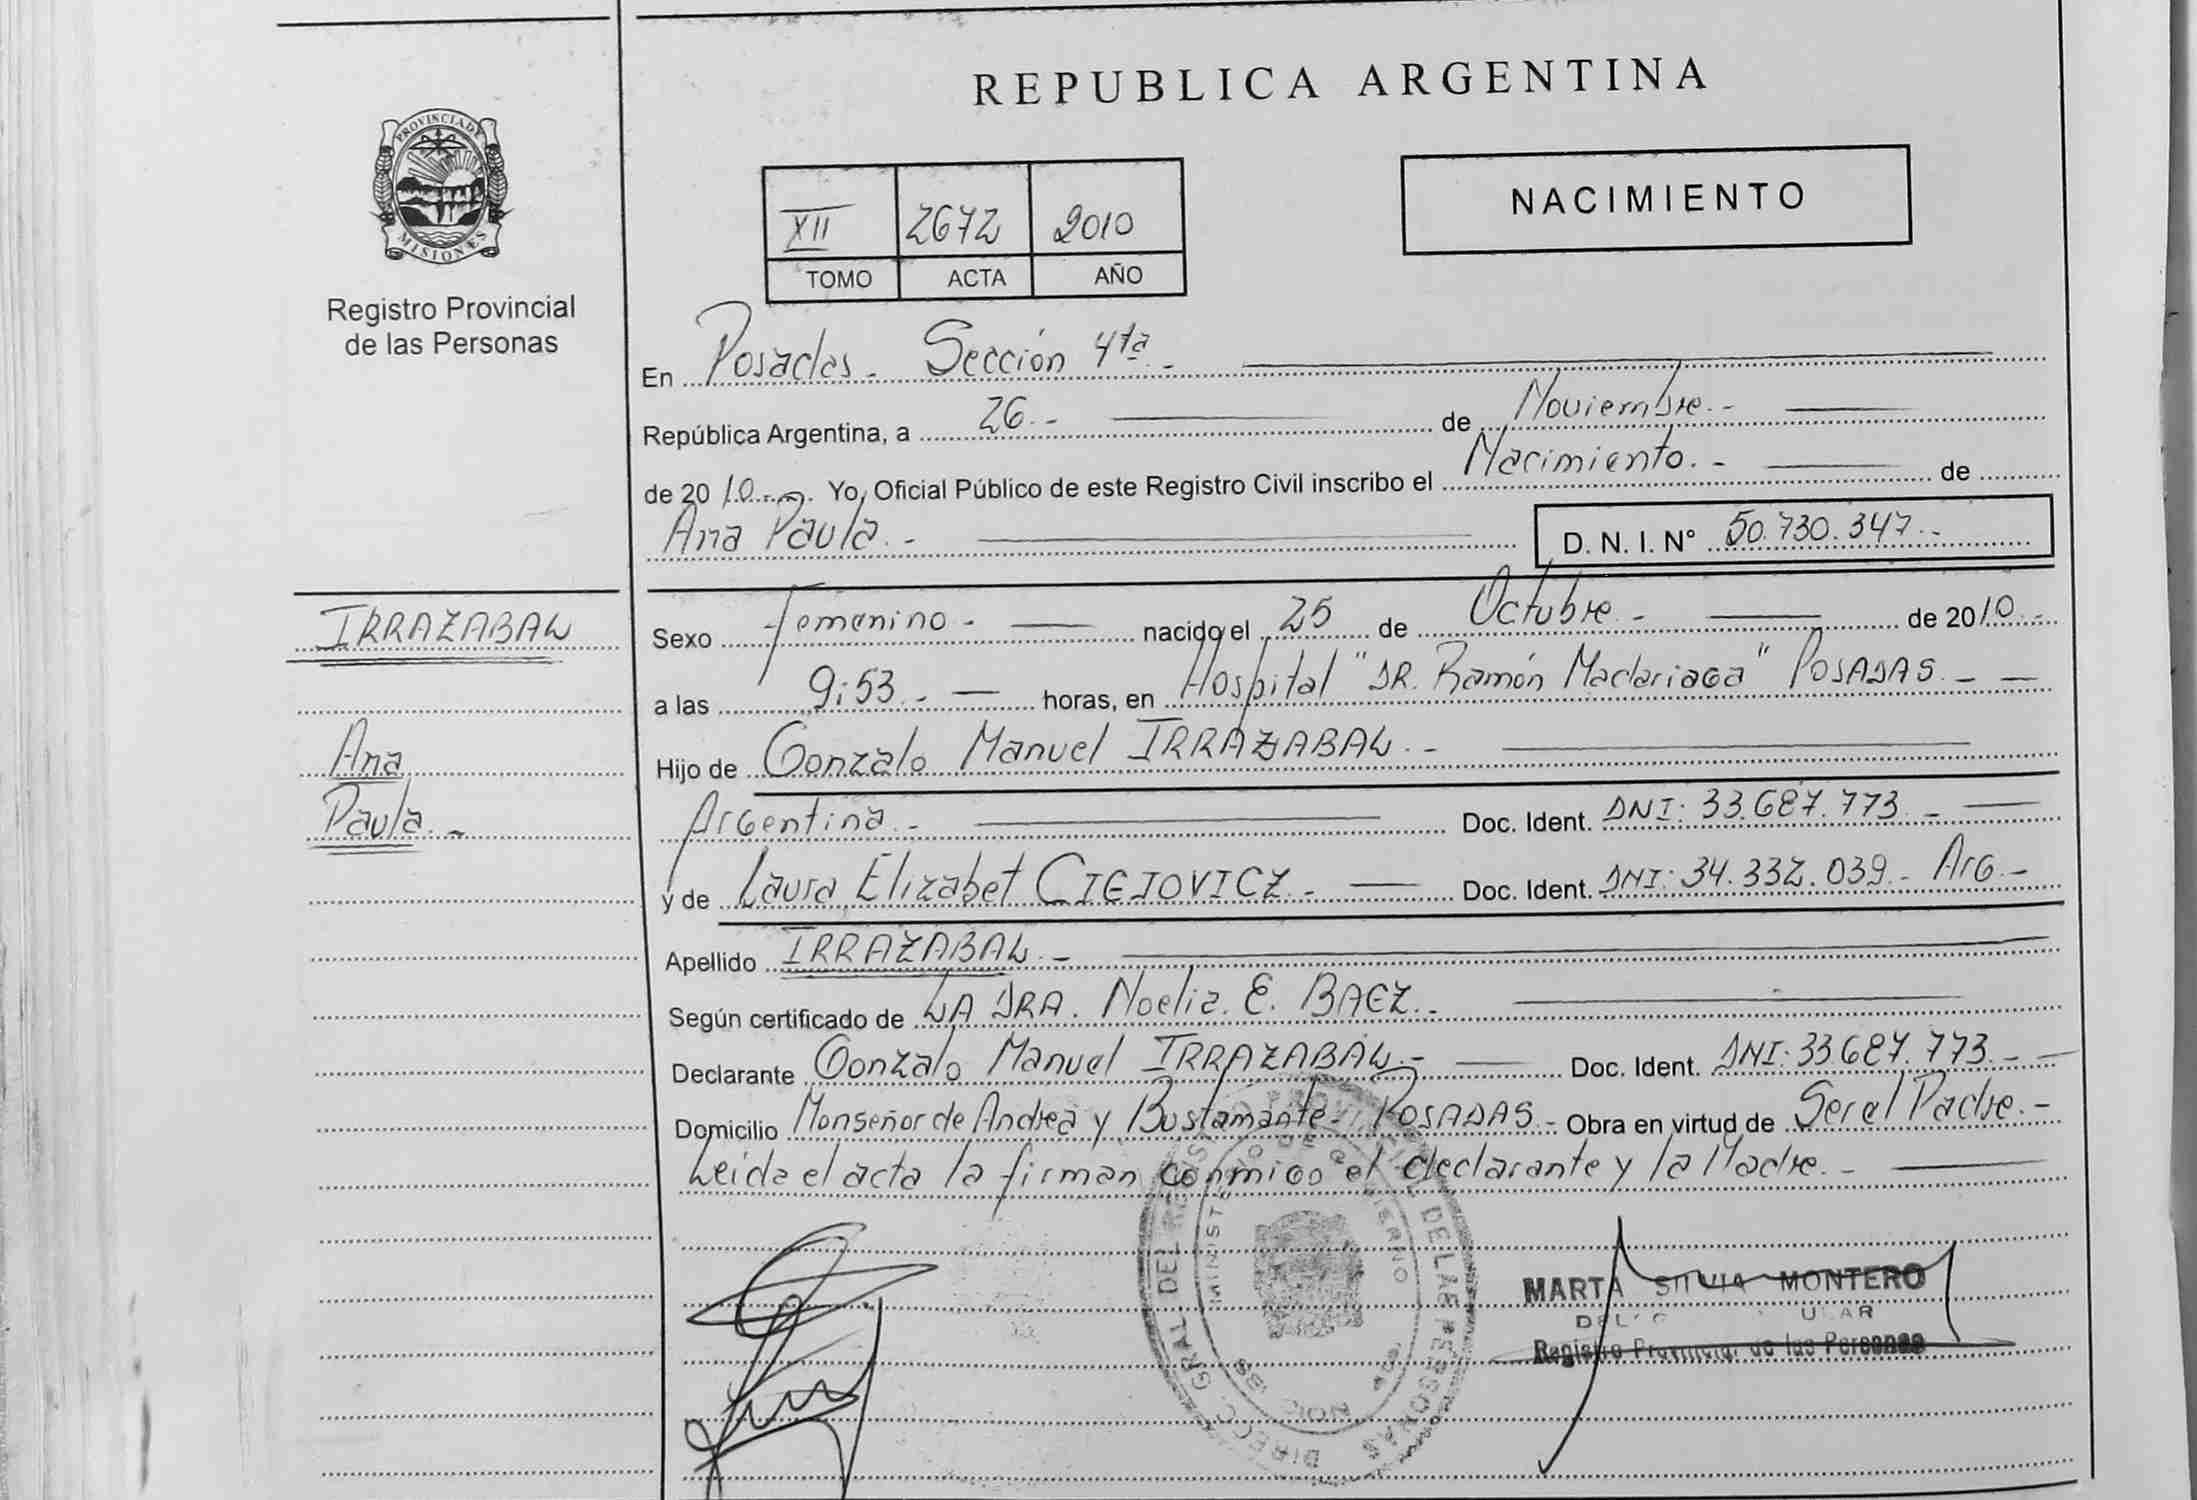 REPUBLICA ARGENTINA
PROVINCIA DE
MISIONES
Registro Provincial
de las Personas
XII 2672 2010
TOMO ACTA AÑO
NACIMIENTO
En Posadas - Sección 4ta -
República Argentina, a 26.- de Noviembre.-
de 2010.- Yo, Oficial Público de este Registro Civil inscribo el Nacimiento.- de
Ana Paula.- D. N. I. N° 50.730.347.-
IRRAZABAL
Ana
Paula.-
Sexo Femenino - nacido el 25 de Octubre - de 2010.-
a las 9:53.- horas, en Hospital "DR. Ramón Madariaga" POSADAS.-
Hijo de Gonzalo Manuel IRRAZABAL.-
Argentina.- Doc. Ident. DNI: 33.687.773.-
y de Laura Elizabet CIEJOVICZ.- Doc. Ident. DNI: 34.332.039.- Arg.-
Apellido IRRAZABAL.-
Según certificado de LA DRA. Noelia. E. BAEZ.-
Declarante Gonzalo Manuel IRRAZABAL.- Doc. Ident. DNI: 33.687.773.-
Domicilio Monseñor de Andrea y Bustamante - POSADAS.- Obra en virtud de Ser el Padre.-
Leida el acta la firman conmigo el declarante y la Madre.-
MARTA SILVIA MONTERO
Registro Provincial de las Personas
DIREC. GRAL DEL DE LAS PERSONAS